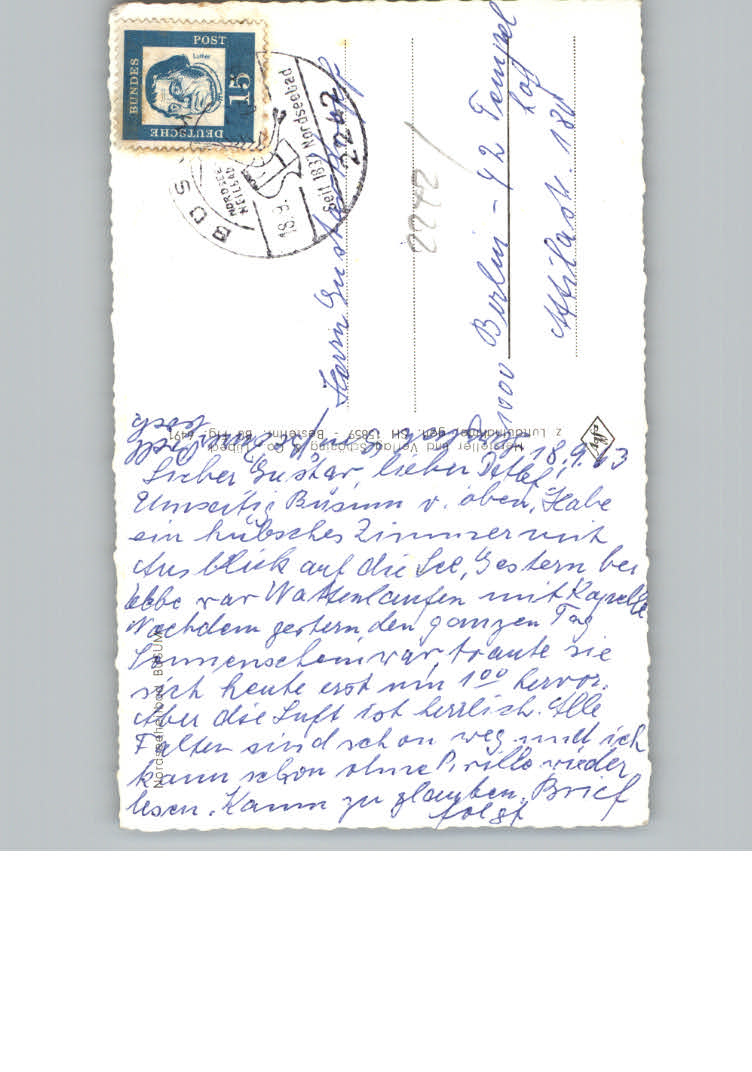 18.9.63
Lieber Gustav, lieber Detlef!
Umseitig Büsum v. oben. Habe
ein hübsches Zimmer mit
Ausblick auf die See. Gestern bei
Ebbe war Wattenlaufen mit Kapelle
Nachdem gestern den ganzen Tag
Sonnenschein war, traute sie
sich heute erst um 1oo hervor.
Aber die Luft ist herrlich. Alle
Falten sind schon weg und ich
kann schon ohne Brille wieder
lesen. Kaum zu glauben. Brief
folgt
Herrn Gustav
1000 Berlin - 42 Tempel
hof
Attilastr. 180
2242
DEUTSCHE
BUNDES
POST
Luther
15
BÜS
NORDSEE
HEILBAD
18.9.
Seit 1837 Nordseebad
2242
Nordseeheilbad BÜSUM
Hersteller und Verlag Schöning & Co., Lübeck